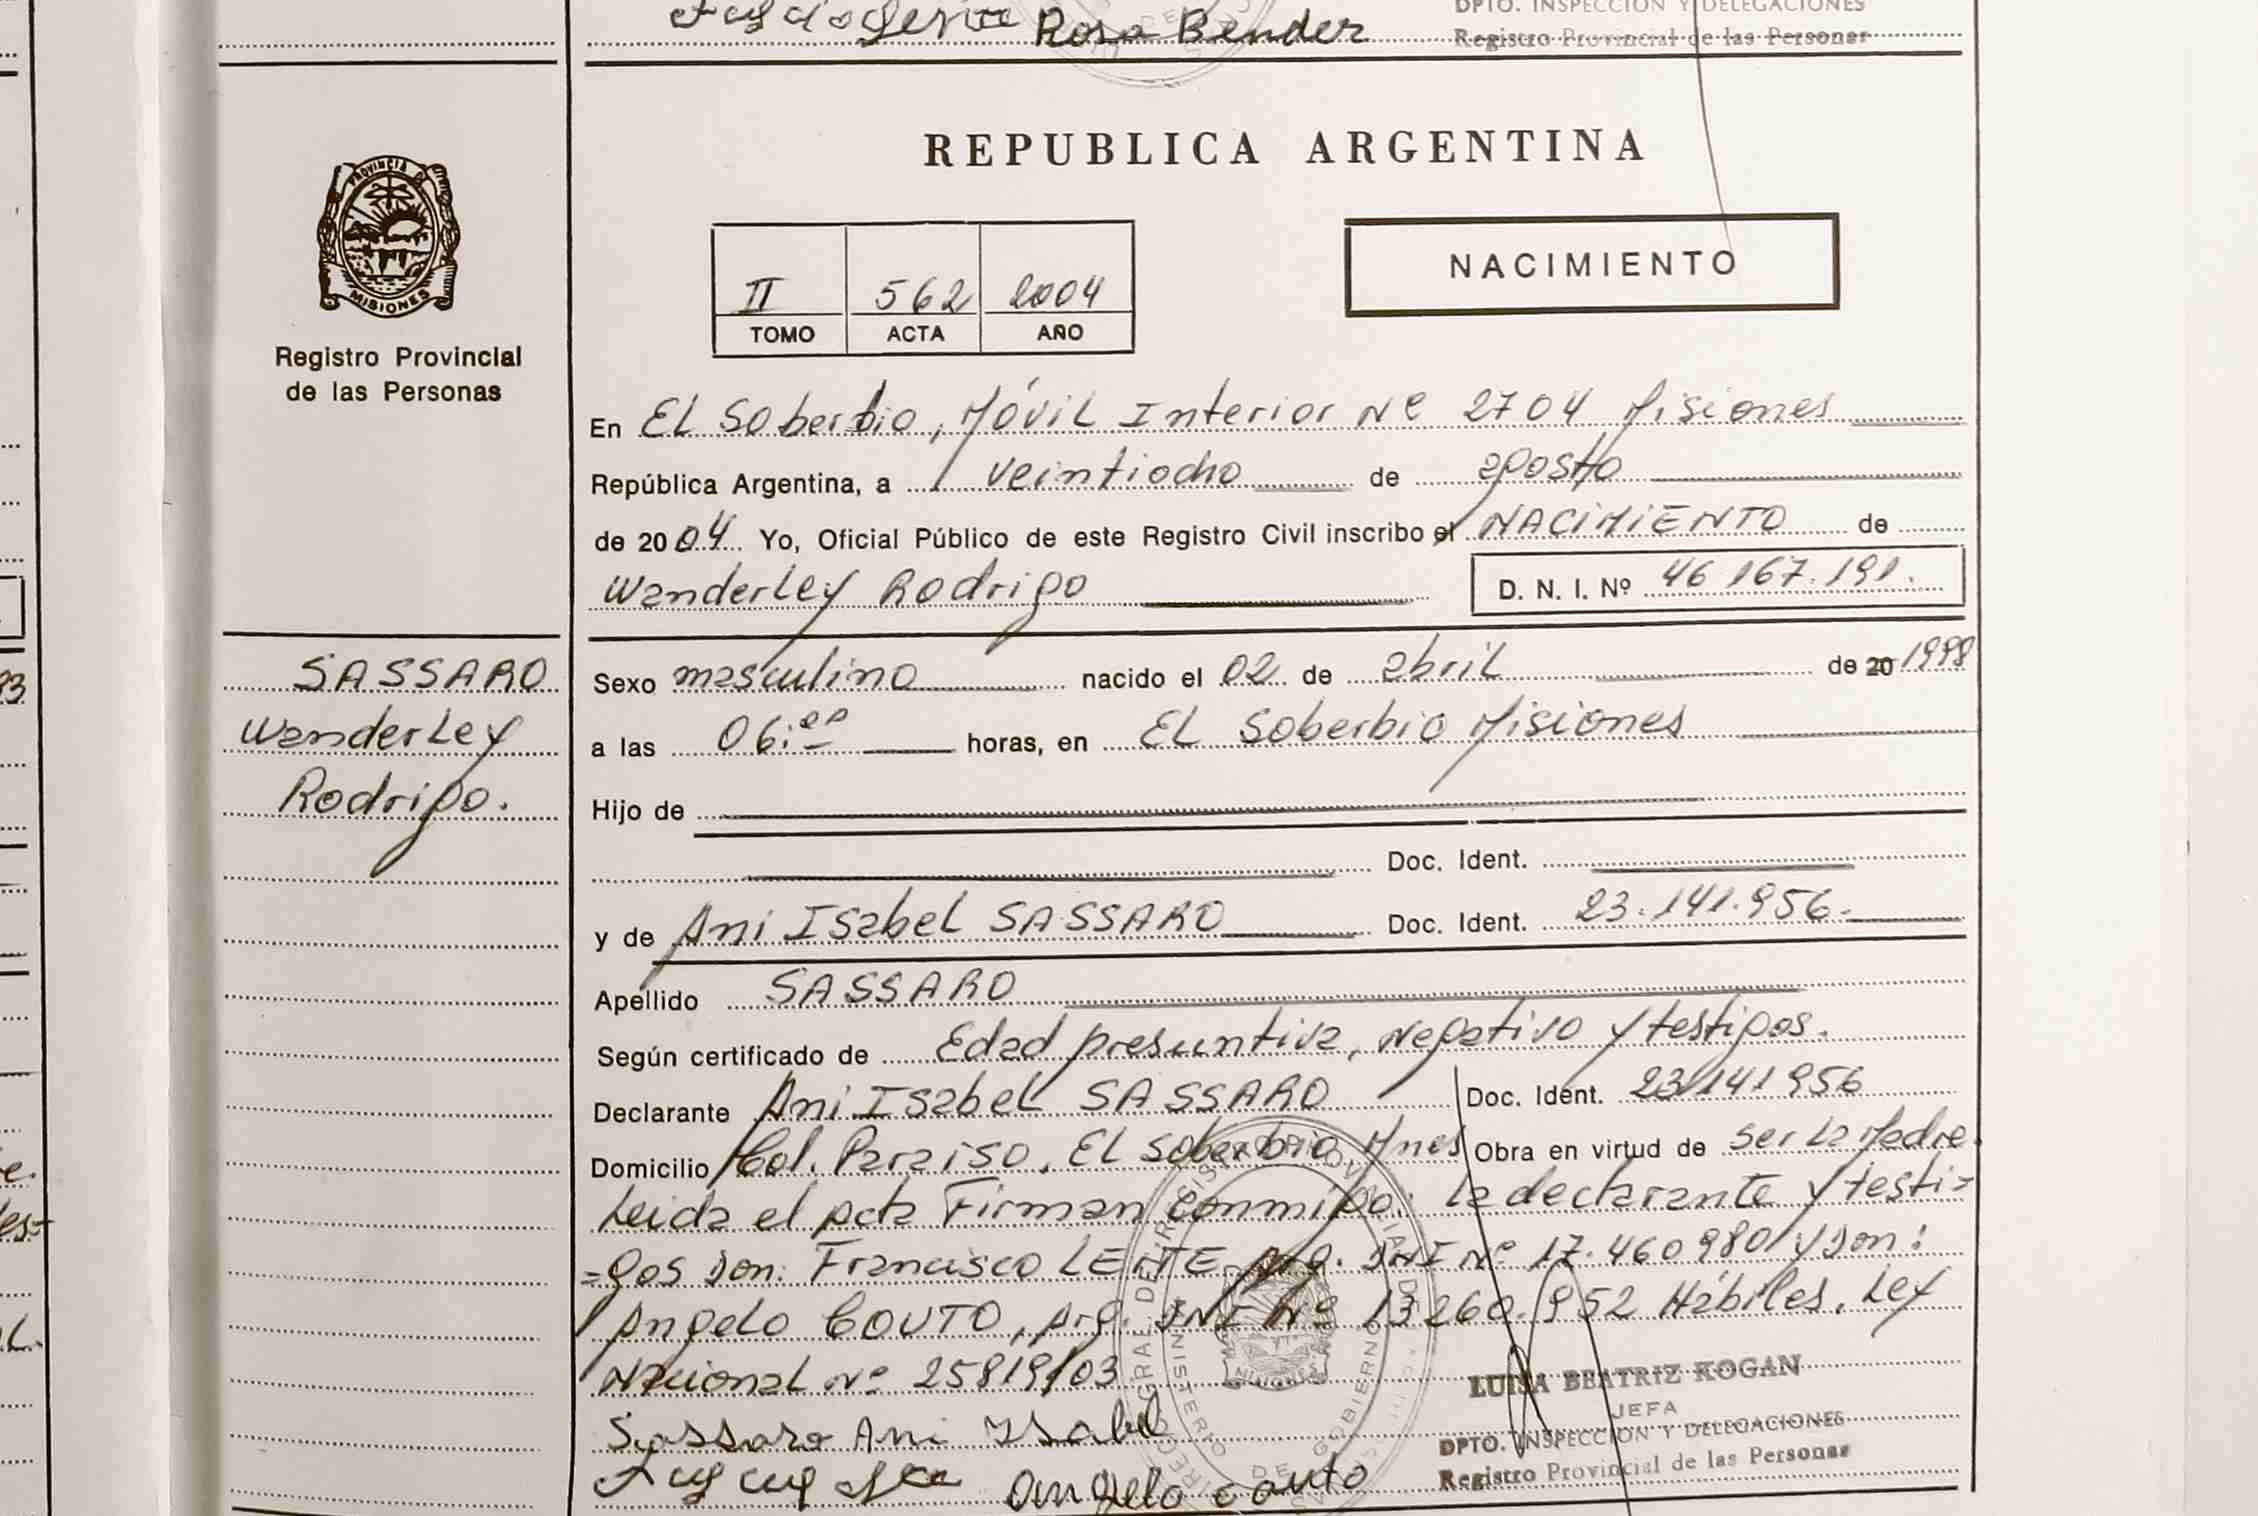 Rosa Bender
DPTO. INSPECCION Y DELEGACIONES
Registro Provincial de las Personas
REPUBLICA ARGENTINA
PROVINCIA DE
MISIONES
Registro Provincial
de las Personas
II 562 2004
TOMO ACTA AÑO
NACIMIENTO
En El Soberbio, Móvil Interior Nº 2704 Misiones
República Argentina, a veintiocho de agosto
de 2004 Yo, Oficial Público de este Registro Civil inscribo el NACIMIENTO de
Wanderley Rodrigo D. N. I. Nº 46 167.191.
SASSARO
Wanderley
Rodrigo.
Sexo masculino nacido el 02 de abril de 20 1998
a las 06:00 horas, en El Soberbio Misiones
Hijo de
Doc. Ident.
y de Ani Isabel SASSARO Doc. Ident. 23.141.956.
Apellido SASSARO
Según certificado de Edad presuntiva, Negativo y testigos.
Declarante Ani Isabel SASSARO Doc. Ident. 23141956
Domicilio Col. Paraiso, El Soberbio Mnes Obra en virtud de ser la Madre.
Leida el acta Firman conmigo: la declarante y testi=
=gos don: Francisco LEITE, Arg. DNI Nº 17.460980 y don:
Angelo COUTO, Arg. DNI Nº 13260.952 Hábiles. Ley
Nacional Nº 25819/03
LUISA BEATRIZ KOGAN
JEFA
DPTO. INSPECCION Y DELEGACIONES
Registro Provincial de las Personas
Sassaro Ani Isabel
Angelo couto